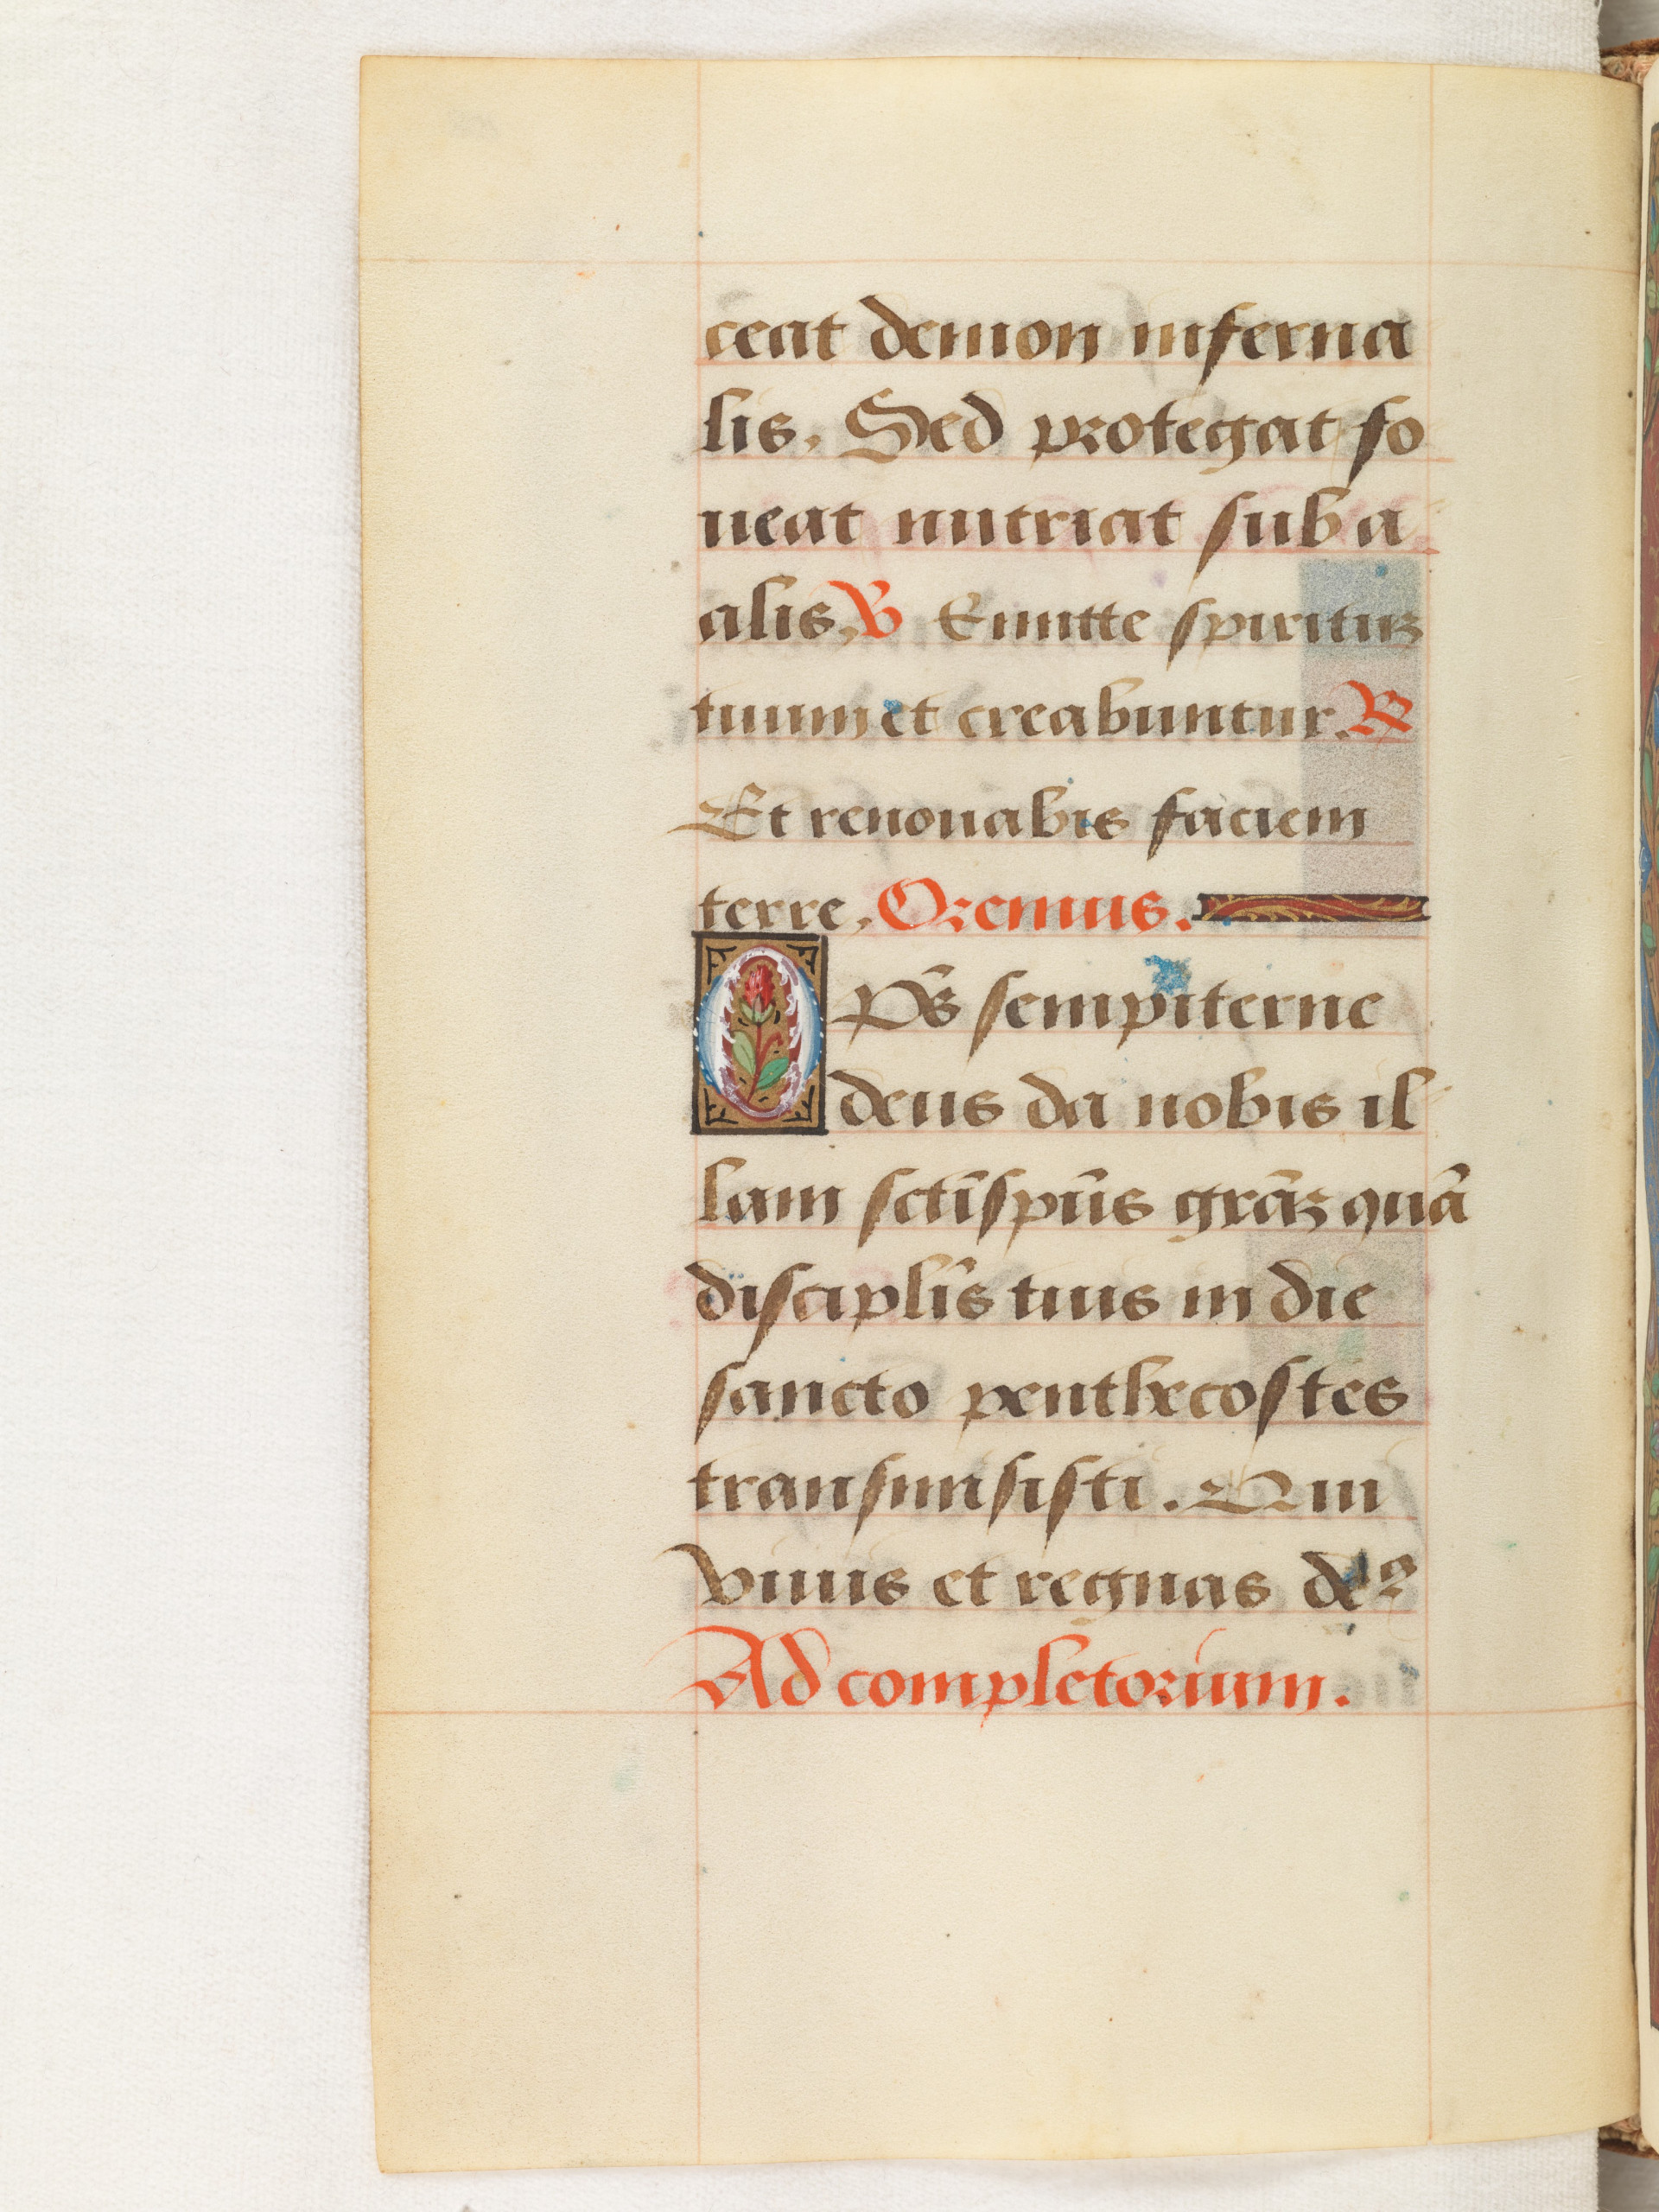 ceat demon inferna
lis. Sed protegat fo
ueat nutriat sub a
alis. ℣ Emitte spirituꝫ
tuum et creabuntur. ℟
Et renouabis faciem
terre. Oremus.
Op̄s sempiterne
deus da nobis il
lam sctīspūs grāꝫ quā
disciplīs tuis in die
sancto penthecostes
transmisisti. Qui
viuis et regnas deꝰ
Ad completorium.